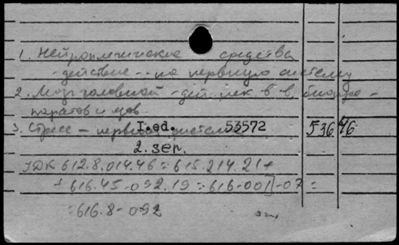 1. Нейротропические средства
- действие - на нервную систему
2. Мозг головной - дей. лек. в-в, биопре-
паратов и ядов
3. Стресс - нервная система
I.ed. 53572 536 46
2. ser.
УДК 612.8.014.46 = 615.214.21 +
+ 616.45-092.19 = 616-001]-07 =
= 616.8-092